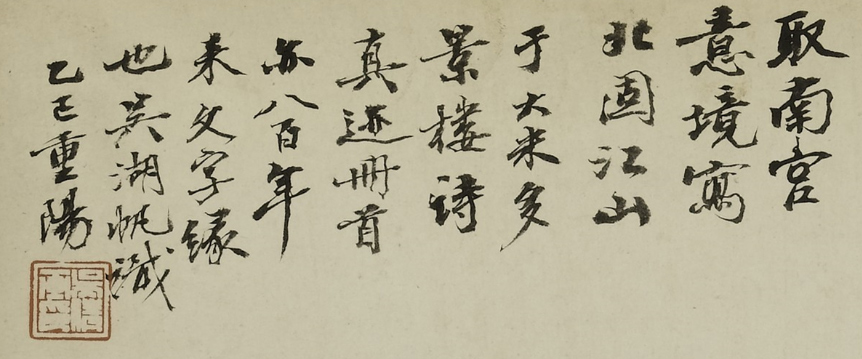 取南宫
意境寫
北固江山
于大米多
景楼詩
真迹冊首
亦八百年
来文字缘
也吴湖帆識
乙巳重陽